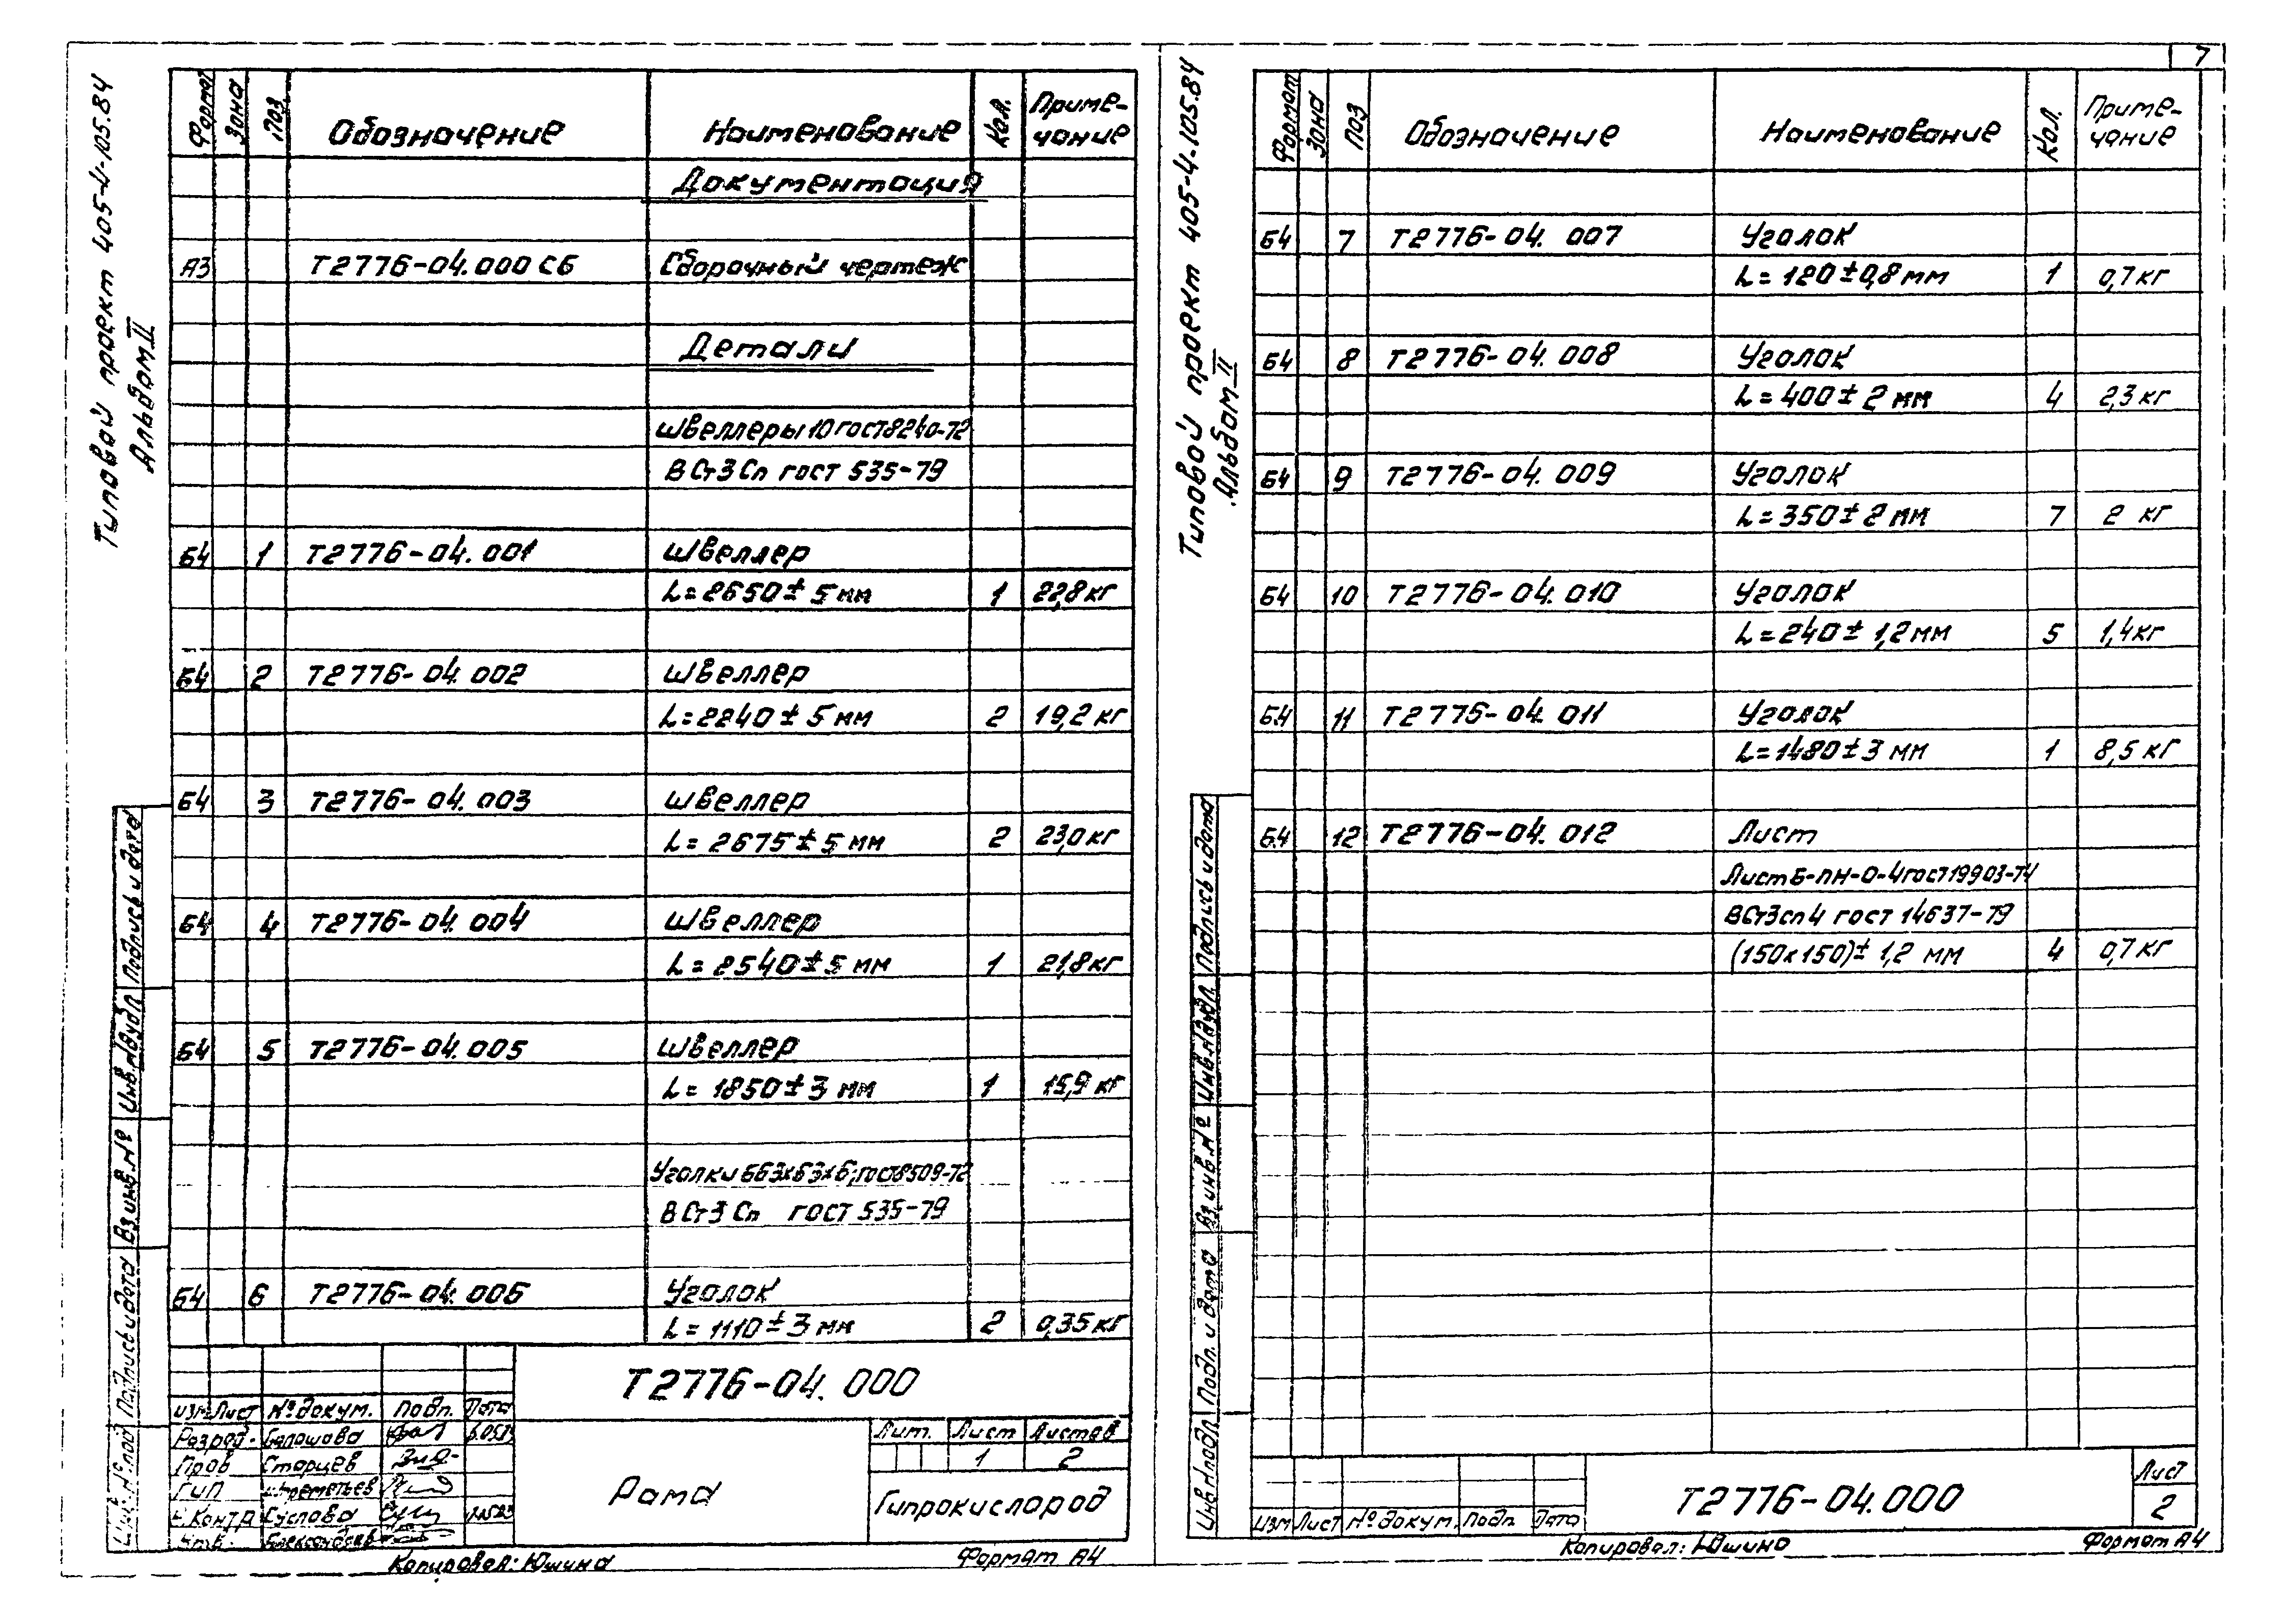 Типовой проект 405-4-105.84
Альбом II
Формат Зона Поз. Обозначение Наименование Кол. Приме-
чание
Документация
А3 Т2776-04.000 СБ Сборочный чертеж
Детали
Швеллеры 10 гост 8240-72
ВСт3Сп гост 535-79
Б4 1 Т2776-04.001 Швеллер
L=2650±5мм 1 22,8кг
Б4 2 Т2776-04.002 Швеллер
L=2240±5мм 2 19,2кг
Б4 3 Т2776-04.003 Швеллер
L=2675±5мм 2 23,0кг
Б4 4 Т2776-04.004 Швеллер
L=2540±5мм 1 21,8кг
Б4 5 Т2776-04.005 Швеллер
L=1850±3мм 1 15,9кг
Уголки Б63х63х6; гост 8509-72
ВСт3Сп гост 535-79
Б4 6 Т2776-04.006 Уголок
L=1110±3мм 2 0,35кг
Т2776-04.000
Изм Лист № докум. Подп. Дата
Разраб. Балашова
Пров Старцев
ГИП Шереметьев
Н.Контр Суслова
Утв. Александров
Рама
Лит. Лист Листов
1 2
Гипрокислород
Инв.№ подл Подпись и дата Вз.инв.№ Инв.№ дубл. Подпись и дата
Копировал: Юшина Формат А4
7
Типовой проект 405-4-105.84
Альбом II
Формат Зона Поз Обозначение Наименование Кол. Приме-
чание
Б4 7 Т2776-04.007 Уголок
L=120±0,8мм 1 0,7кг
Б4 8 Т2776-04.008 Уголок
L=400±2мм 4 2,3кг
Б4 9 Т2776-04.009 Уголок
L=350±2мм 7 2 кг
Б4 10 Т2776-04.010 Уголок
L=240±1,2мм 5 1,4кг
Б4 11 Т2776-04.011 Уголок
L=1480±3мм 1 8,5кг
Б4 12 Т2776-04.012 Лист
Лист Б-ПН-О-4 гост 19903-74
ВСт3сп4 гост 14637-79
(150х150)±1,2 мм 4 0,7кг
Инв.№ подл Подп. и дата Вз.инв.№ Инв.№ дубл. Подпись и дата
Изм Лист № докум. Подп Дата
Т2776-04.000
Лист
2
Копировал: Юшина Формат А4